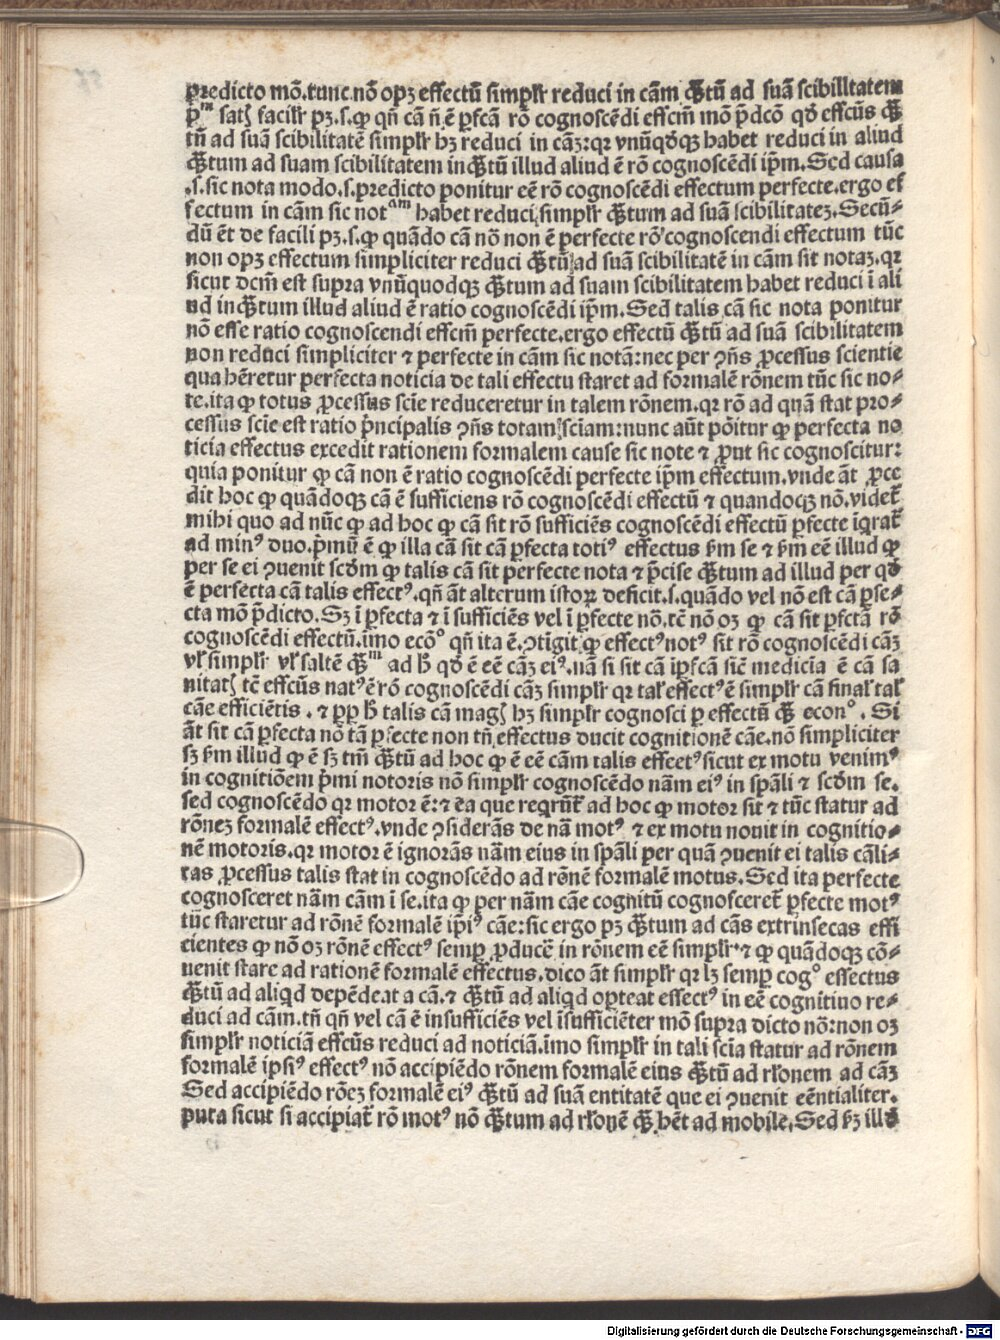 predicto mō.tunc.nō opꝫ effectū simplr̄ reduci in cām q̄tū ad suā scibilitatem
p̄ᵐ satꝭ facilr̄ pꝫ.s.ꝙ qn̄ cā n̄ ē pfcā rō cognoscēdi effcm̄ mō p̄dcō qd̄ effcūs q̄
tū ad suā scibilitatē simplr̄ hꝫ reduci in cāꝫ:qr vnūqdqꝫ habet reduci in aliud
q̄tum ad suam scibilitatem inq̄tū illud aliud ē rō cognoscēdi ip̄m.Sed causa
.s.sic nota modo.s.predicto ponitur eē rō cognoscēdi effectum perfecte.ergo ef
fectum in cām sic notᵃᵐ habet reduci simplr̄ q̄tum ad suā scibilitateꝫ.Secū-
dū ēt de facili pꝫ.s.ꝙ quādo cā nō non ē perfecte rō cognoscendi effectum tūc
non opꝫ effectum simpliciter reduci q̄tū ad suā scibilitatē in cām sit notaꝫ.qr
sicut dcm̄ est supra vnūquodqꝫ q̄tum ad suam scibilitatem habet reduci ī ali
ud inq̄tum illud aliud ē ratio cognoscēdi ip̄m.Sed talis cā sic nota ponitur
nō esse ratio cognoscendi effcm̄ perfecte.ergo effectū q̄tū ad suā scibilitatem
non reduci simpliciter ⁊ perfecte in cām sic notā:nec per ꝯn̄s ꝓcessus scientie
qua hēretur perfecta noticia de tali effectu staret ad formalē rōnem tūc sic no-
te.ita ꝙ totus ꝓcessus scīe reduceretur in talem rōnem.qr rō ad quā stat pro-
cessus scīe est ratio p̄ncipalis ꝯn̄s totam sciam:nunc aūt pōitur ꝙ perfecta no
ticia effectus excedit rationem formalem cause sic note ⁊ ꝓut sic cognoscitur:
quia ponitur ꝙ cā non ē ratio cognoscēdi perfecte ip̄m effectum.vnde āt ꝓce
dit hoc ꝙ quādoqꝫ cā ē sufficiens rō cognoscēdi effectū ⁊ quandoqꝫ nō.videt̄
mihi quo ad nūc ꝙ ad hoc ꝙ cā sit rō sufficiēs cognoscēdi effectū ꝑfecte īqrat̄
ad minꝰ duo.p̄mū ē ꝙ illa cā sit cā ꝑfecta totiꝰ effectus ẜm se ⁊ ẜm eē illud ꝙ
per se ei ꝯuenit scd̄m ꝙ talis cā sit perfecte nota ⁊ p̄cise q̄tum ad illud per qd̄
ē perfecta cā talis effectꝰ.qn̄ āt alterum istoꝝ deficit.s.quādo vel nō est cā ꝑfe-
cta mō p̄dicto.Sꝫ ī ꝑfecta ⁊ ī sufficiēs vel ī ꝑfecte nō.tc̄ nō oꝫ ꝙ cā sit ꝑfctā rō
cognoscēdi effectū.īmo ecōº qn̄ ita ē.ꝯtīgit ꝙ effectꝰnotꝰ sit rō cognoscēdi cāꝫ
vl̄ simplr̄ vl̄ saltē q̄ᵐ ad h̄ qd̄ ē eē cāꝫ eiꝰ.nā si sit cā īꝑfcā sic̄ medicīa ē cā sa
nitatꝭ tc̄ effcūs natꝰ ē rō cognoscēdi cāꝫ simplr̄ qr tal̄ effectꝰ ē simplr̄ cā final̄ tal̄
cāe efficiētis.⁊ ꝓp h̄ talis cā magꝭ hꝫ simplr̄ cognosci ꝑ effectū q̄ econº.Si
āt sit cā ꝑfecta nō tā ꝑfecte non tn̄ effectus ducit cognitionē cāe.nō simpliciter
sꝫ ẜm illud ꝙ ē sꝫ tm̄ q̄tū ad hoc ꝙ ē eē cām talis effectꝰsicut ex motu venimꝰ
in cognitiōem p̄mi motoris nō simplr̄ cognoscēdo nām eiꝰ in spāli ⁊ scd̄m se.
sed cognoscēdo qr motor ē:⁊ ea que reqrūt̄ ad hoc ꝙ motor sit ⁊ tūc statur ad
rōneꝫ formalē effectꝰ.vnde ꝯsiderās de nā motꝰ ⁊ ex motu nouit in cognitio-
nē motoris.qr motor ē ignorās nām eius in spāli per quā ꝯuenit ei talis cāli-
tas ꝓcessus talis stat in cognoscēdo ad rōnē formalē motus.Sed ita perfecte
cognosceret nām cām ī se.ita ꝙ per nām cāe cognitū cognosceret̄ ꝑfecte motꝰ
tūc staretur ad rōnē formalē ip̄iꝰ cāe:sic ergo pꝫ q̄tum ad cās extrinsecas effi
cientes ꝙ nō oꝫ rōnē effectꝰ semꝑ ꝓducē in rōnem eē simplr̄.⁊ ꝙ quādoqꝫ cō-
uenit stare ad rationē formalē effectus.dico āt simplr̄ qr lꝫ semꝑ cogº effectus
q̄tū ad aliqd depēdeat a cā.⁊ q̄tū ad aliqd oꝑteat effectꝰ in eē cognitiuo re-
duci ad cām.tn̄ qn̄ vel cā ē insufficiēs vel īsufficiēter mō supra dicto nō:non oꝫ
simplr̄ noticiā effcūs reduci ad noticiā.īmo simplr̄ in tali scīa statur ad rōnem
formalē ipsiꝰ effectꝰ nō accipiēdo rōnem formalē eius q̄tū ad rl̄onem ad cāꝫ
Sed accipiēdo rōeꝫ formalē eiꝰ q̄tū ad suā entitatē que ei ꝯuenit eēntialiter.
puta sicut si accipiat̄ rō motꝰ nō q̄tum ad rl̄onē q̄ hēt ad mobile.Sed ẜꝫ illd̄
Digitalisierung gefördert durch die Deutsche Forschungsgemeinschaft - DFG